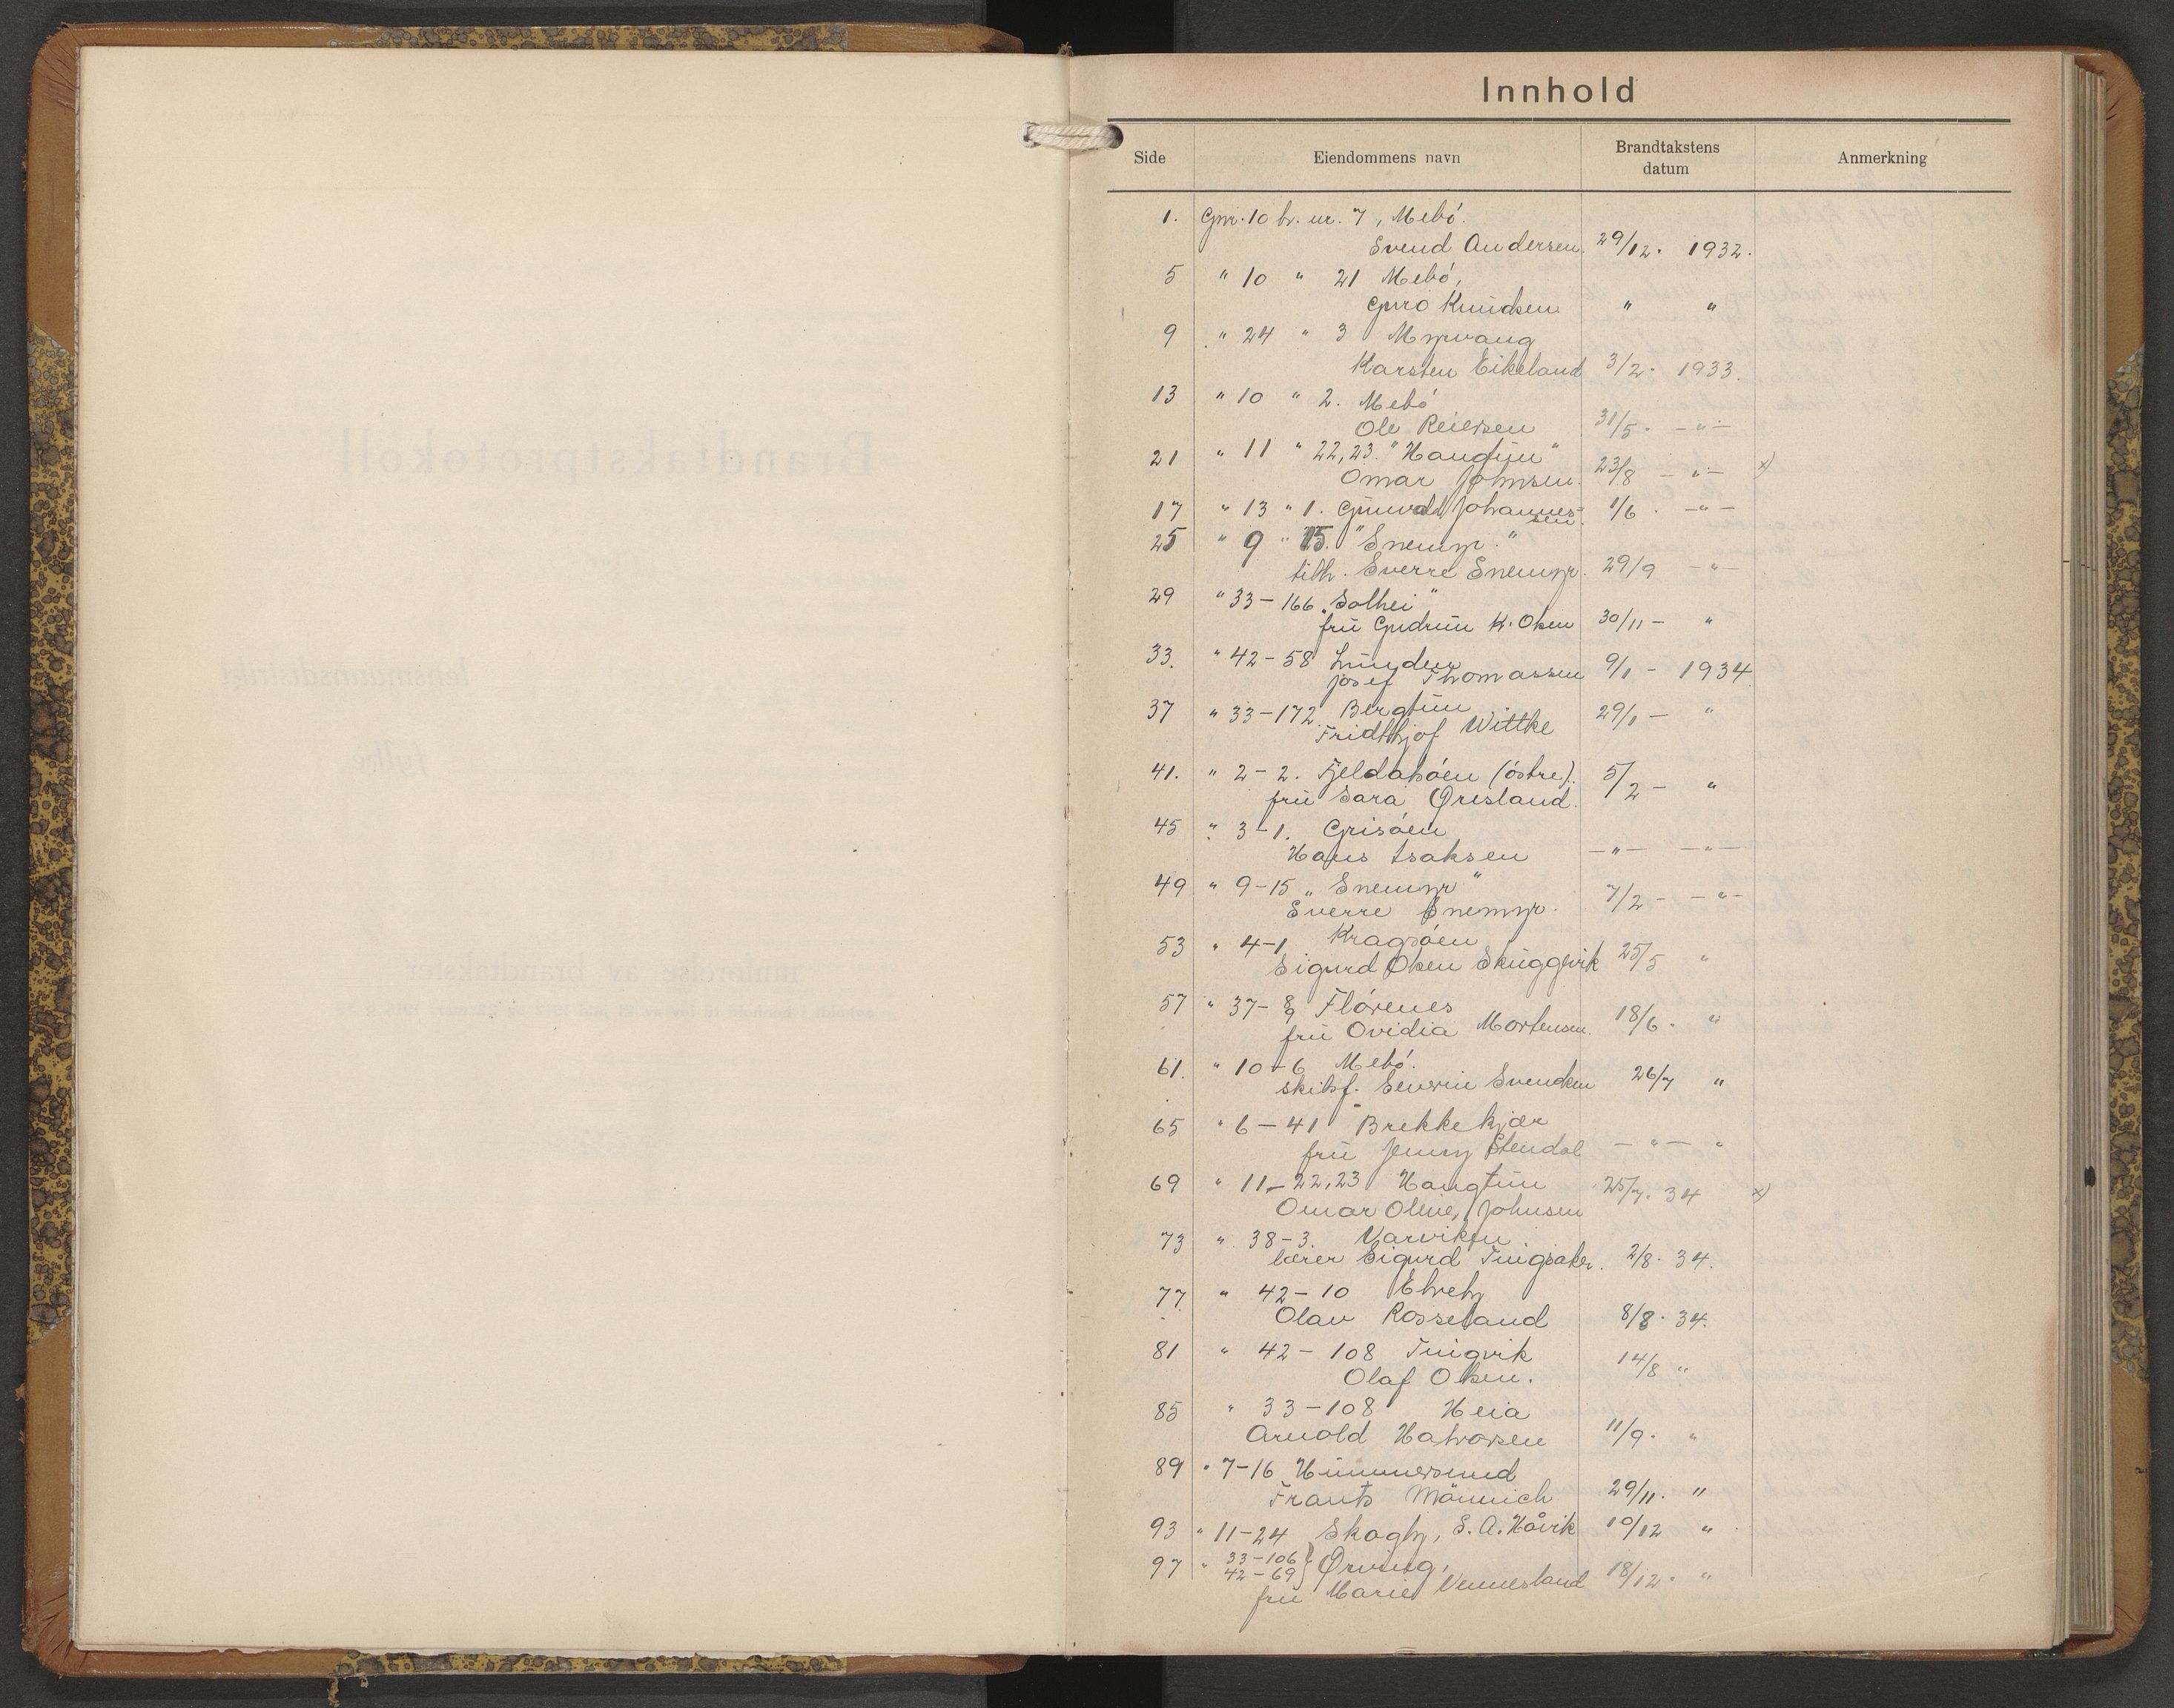 Innhold
Side Eiendommens navn Brandtakstens datum Anmerkning
1. Gnr. 10 br. nr. 7, Mebó.
Svend Andersen. 29/12. 1932.
5 " 10 " 21 Mebó,
Guro Knudsen " "
9 " 24 " 3 Myrvang
Karsten Eikeland 3/2. 1933.
13 " 10 " 2. Mebó
Ole Reiersen 31/5. -"-
21 " 11 " 22, 23. "Haugtun"
Omar Johnsen. 23/8 -"- x)
17 " 13 " 1. Gunvald Johannes-
sen. 1/6. -"-
25 " 9 " 15. "Snemyr."
tilh. Sverre Snemyr. 29/9 -"-
29 " 33-166 "Solhei"
fru Gudrun K. Olsen 30/11- "
33. " 42-58
Josef Thomassen 9/1- 1934
37 " 33-172. Bergtun
Fridthjof Wittke 29/1- "
41. " 2-2. Fjeldalsóen (óstre).
fru Sara Øresland. 5/2- "
45 " 3-1. Grisóen
Hans Isaksen -"- -"-
49 " 9-15 "Snemyr"
Sverre Snemyr. 7/2- -"-
53 " 4-1 Kragsóen
Sigurd Olsen Skuggevik 25/5 "
57 " 37-8/9 Flórenes
fru Ovidia Mortensen. 18/6. "
61. " 10-6 Mebó.
skibsf. Severin Svendsen 26/7 "
65 " 6-41 Brekkekjær
fru Jenny Stendal -"- "
69 " 11-22,23 Haugtun
Omar Johnsen 25/7. 34 x)
73 " 38-3. Varviken
lærer Sigurd Tingsaker. 2/8. 34.
77. " 42-10
Olav Rosseland 8/8. 34.
81 " 42-108 Tingvik
Olaf Olsen. 14/8 "
85 " 33-108 Heia
Arnold Halvorsen 11/9. "
89 " 7-16 Hummersund
Frants Männich 29/11. "
93 " 11-24 Skogly, S. A. Håvik 10/12 "
97 " 33-106 } Ørving,
42-69
fru Marie Vennesland 18/12. "